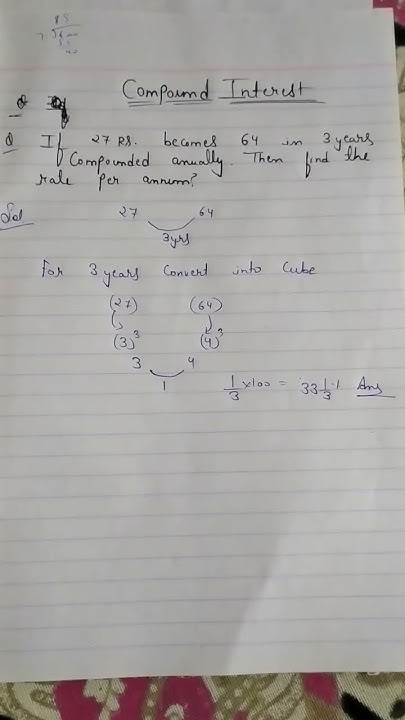 Compound Interest
Q If 27 RS. becomes 64 in 3 years
Compounded anually. Then find the
rate per annum?
Sol
27 64
3yrs
For 3 years Convert into Cube
(27) (64)
(3)³ (4)³
3 4
1
1/3 × 100 = 33 1/3 % Ans